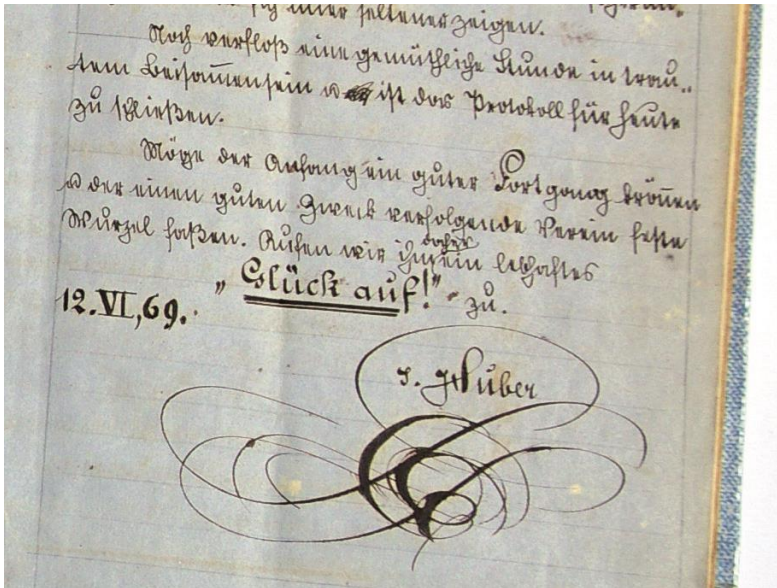 sich immer seltener zeigen.
Noch verfloß eine gemüthliche Stunde in trau-
tem Beisam̅ensein u ist das Protokoll für heute
zu schließen.
Möge der Anfang ein guter Fortgang krönen
u der einen guten Zweck verfolgende Verein feste
Wurzel faßen. Rufen wir ihm daher ein lebhaftes
"Glück auf!" zu.
12.VI,69.
J. Huber